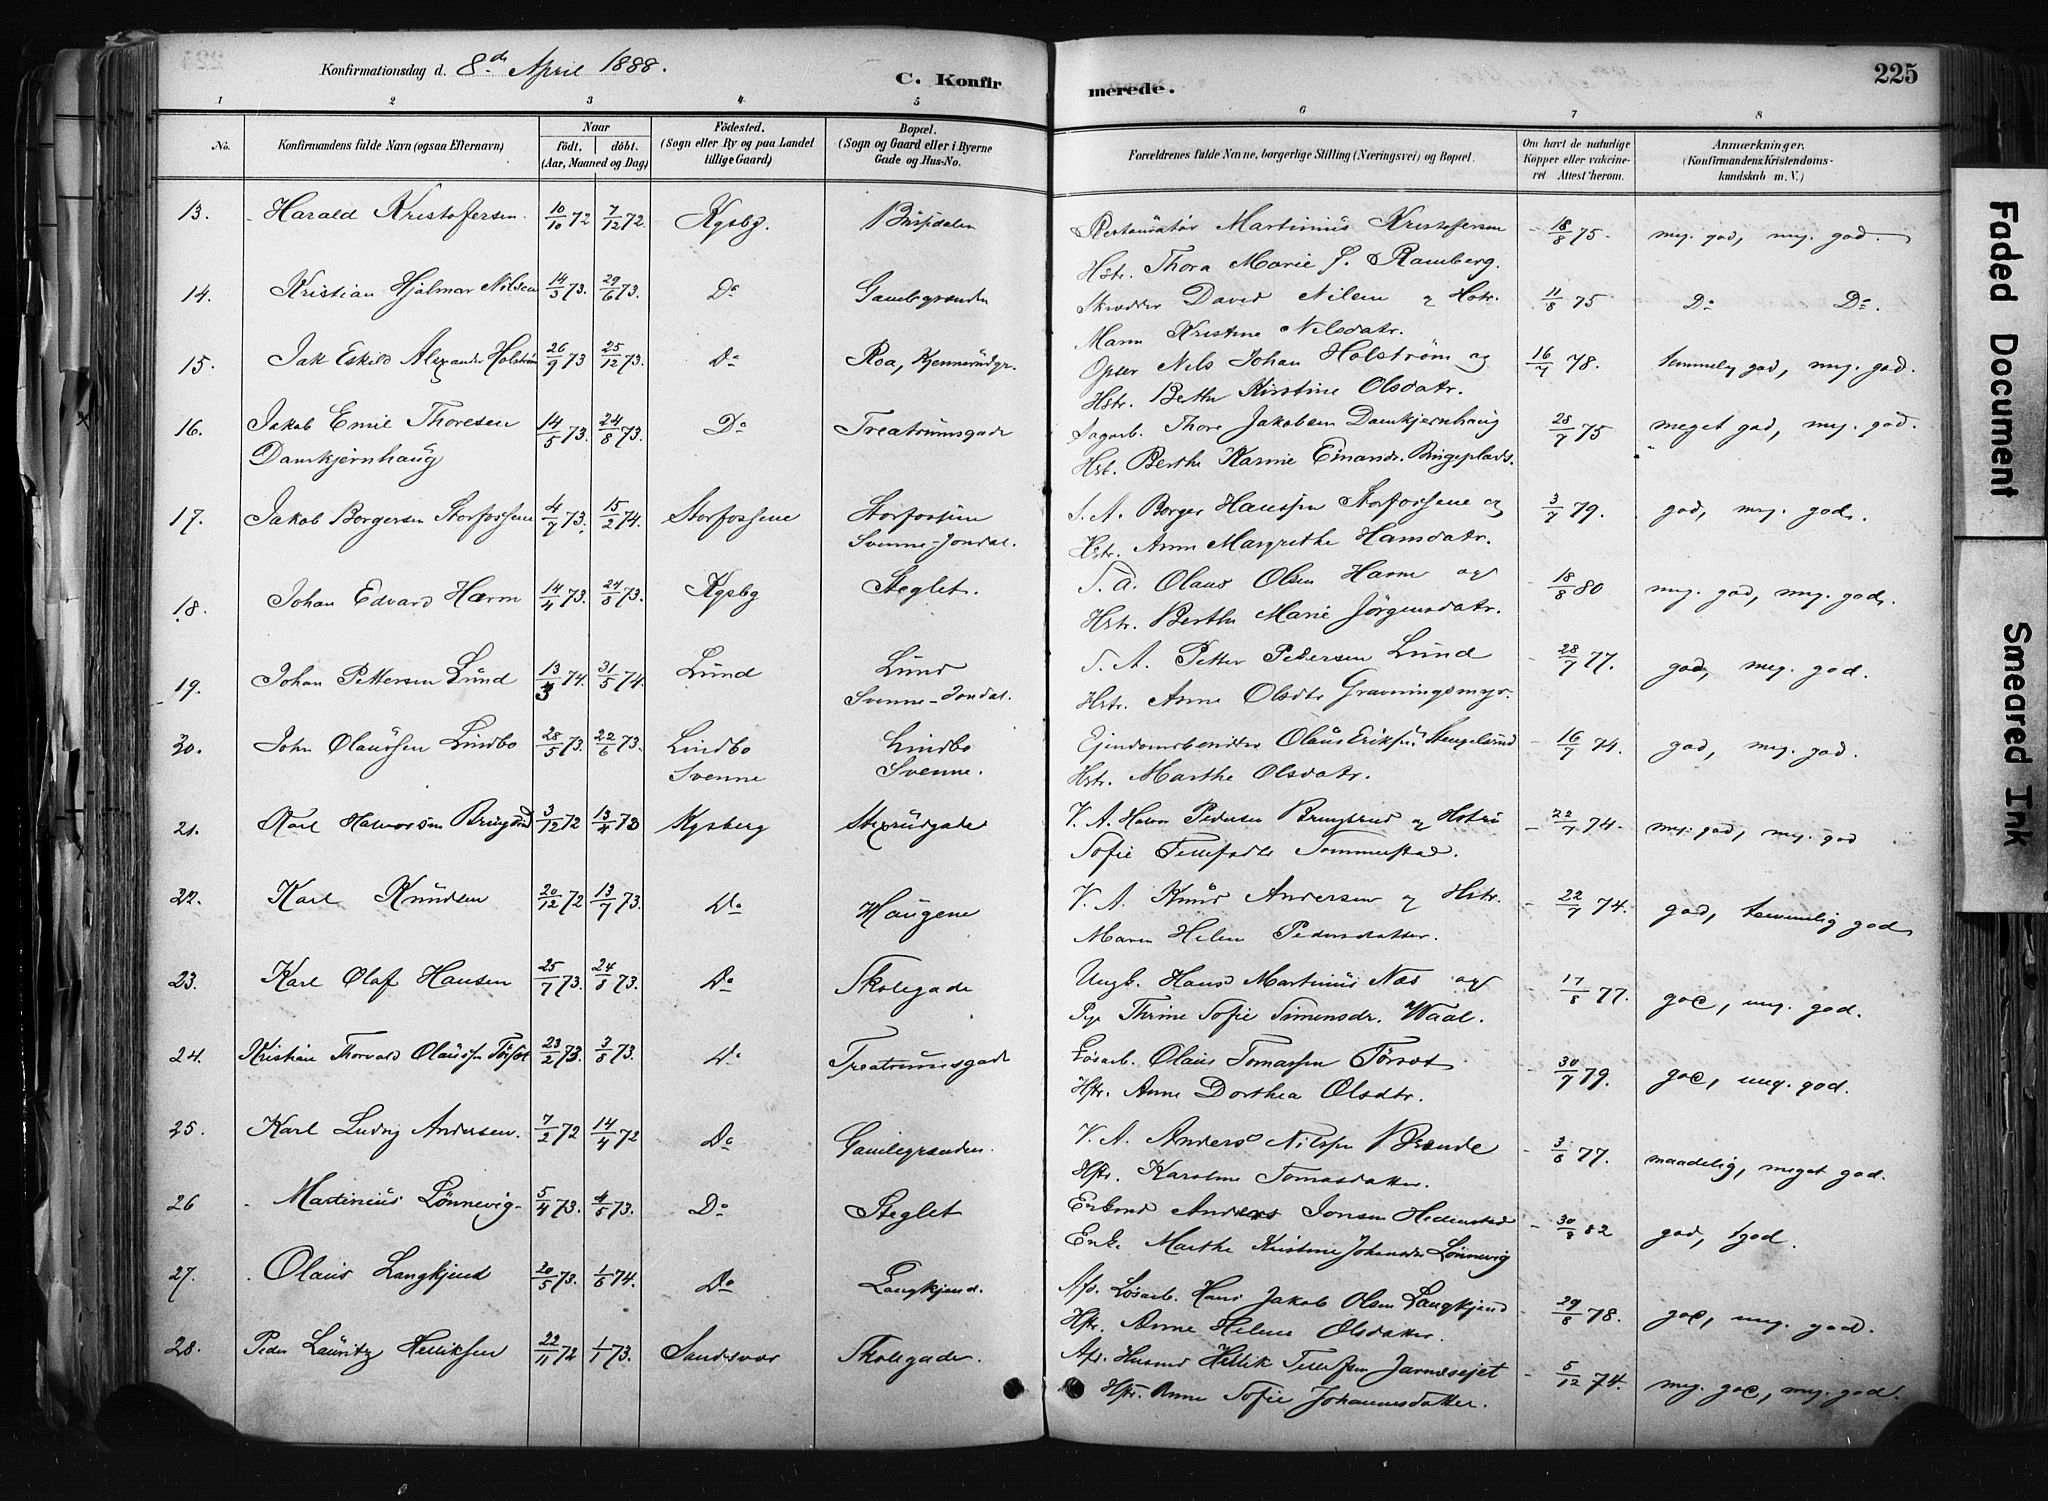 Konfirmationsdag d. 8de April 1888.
C. Konfirmerede.
225
1 2 3 4 5 6 7 8
No.
Konfirmandens fulde Navn (ogsaa Efternavn)
Naar
födt. döbt.
(Aar, Maaned og Dag)
Födested.
(Sogn eller By og paa Landet
tillige Gaard)
Bopæl.
(Sogn og Gaard eller i Byerne
Gade og Hus-No.
Forældrenes fulde Navne, borgerlige Stilling (Næringsvei) og Bopæl.
Om havt de naturlige
Kopper eller vakcine-
ret Attest herom.
Anmærkninger.
(Konfirmandens Kristendoms-
kundskab m. V.)
13. Harald Kristofersen 10/10 72 7/12 72. Kgsbg. Restauratør Martinius Kristofersen 18/8 75. meg. god, meg. god.
Hstr. Thora Marie J. Ramberg.
14. Kristian Hjalmar Nilsen 14/3 73. 29/6 73. Do Gamlegrænden Skrædder David Nilsen og Hstr. 11/8 75 Do Do.
Maren Kristine Nilsdatr.
15. Jak Eskild Alexander Holström 26/9 73 25/12 73. Do Roa, Kjennerudgr. Opser Nils Johan Holström og 16/7 78. temmelig god, meg. god.
Hstr. Berthe Kirstine Olsdatr.
16. Jakob Emil Thoresen 14/5 73. 24/8 73. Do Treatrumsgade Sagarb. Thore Jakobsen Damkjernhaug 28/7 75 meget god, meg. god.
Damkjernhaug Hst. Berthe Karine
17. Jakob Borgersen Storfossene 4/7 73. 15/2 74. Storfossene Storfossene S. A. Borger Hanssen Storfossene og 3/7 79. god, meg. god.
Svenne-Jondal. Hstr. Anne Margrethe Hansdatr.
18. Johan Edvard Harm 14/4 73. 24/8 73. Kgsbg Steglet. S. A. Olaus Olsen Harm og 18/8 80 meg. god, meg. god.
Hstr. Berthe Marie Jörgensdatr.
19. Johan Pettersen Lund 13/3 74. 31/5 74. Lund Lund S. A. Petter Pedersen Lund 28/7 77. god, meg. god.
Svenne-Jondal. Hstr. Anne Olsdtr Gravningsmyr.
20. John Olaussen Lindbo 28/5 73. 22/6 73. Lindbo Lindbo Ejendomsbesidder Olaus Eriksen Stengelsrud 16/7 74. god, meg. god.
Svenne Svenne. Hstr. Marthe Olsdatr.
21. Karl Halvorsen Brungsrud 3/12 72 13/4 73 Kgsberg V. A. Halvor Pedersen Brungsrud og Hstru 22/7 74. meg. god, meg. god
Sofie
22. Karl Knudsen 20/12 72 13/7 73. Do Haugene V. A. Knud Andersen og Hstr. 22/7 74. god, temmelig god
Maren Helene Pedersdatter.
23. Karl Olaf Hansen 25/7 73. 24/8 73. Do Skolegade Ungk. Hans Martinius Næs og 17/8 77. god, meg. god.
Pige Thrine Sofie Simensdr. Waal.
24. Kristian Thorvald Olaussen Törset 23/2 73 3/8 73. Do Treatrumsgade Løsarb. Olaus Tomassen Törset 30/7 79. god, meg. god.
Hstr. Anne Dorthea Olsdtr.
25. Karl Ludvig Andersen. 7/2 72 14/4 72 Do Gamlegrænden. V. A. Anders Nilssen Brende 3/8 77. maadelig, meget god.
Hstr. Karoline Tomasdatter.
26 Martinius Lönnevig 5/4 73. 4/5 73. Do Steglet Enkmd Anders Jonsen Hedenstad 30/8 82 god, tgod.
Enk. Marthe Kristine Johansdr Lönnevig
27. Olaus Langkjend 20/5 73. 1/6 74. Do Langkjend. Afd. Løsarb. Hans Jakob Olsen Langkjend 29/8 78. god, meg. god.
Hstr. Anne Helene Olsdatter.
28. Peder Lauritz Helliksen 22/11 72 1/1 73. Sandsvær Skolegade. Afd. Husmd Hellik Tellefsen Jarnæsejet 5/12 74. meg. god, meg. god.
Hstr. Anne Sofie Johannesdatter.
Faded Document
Smeared Ink